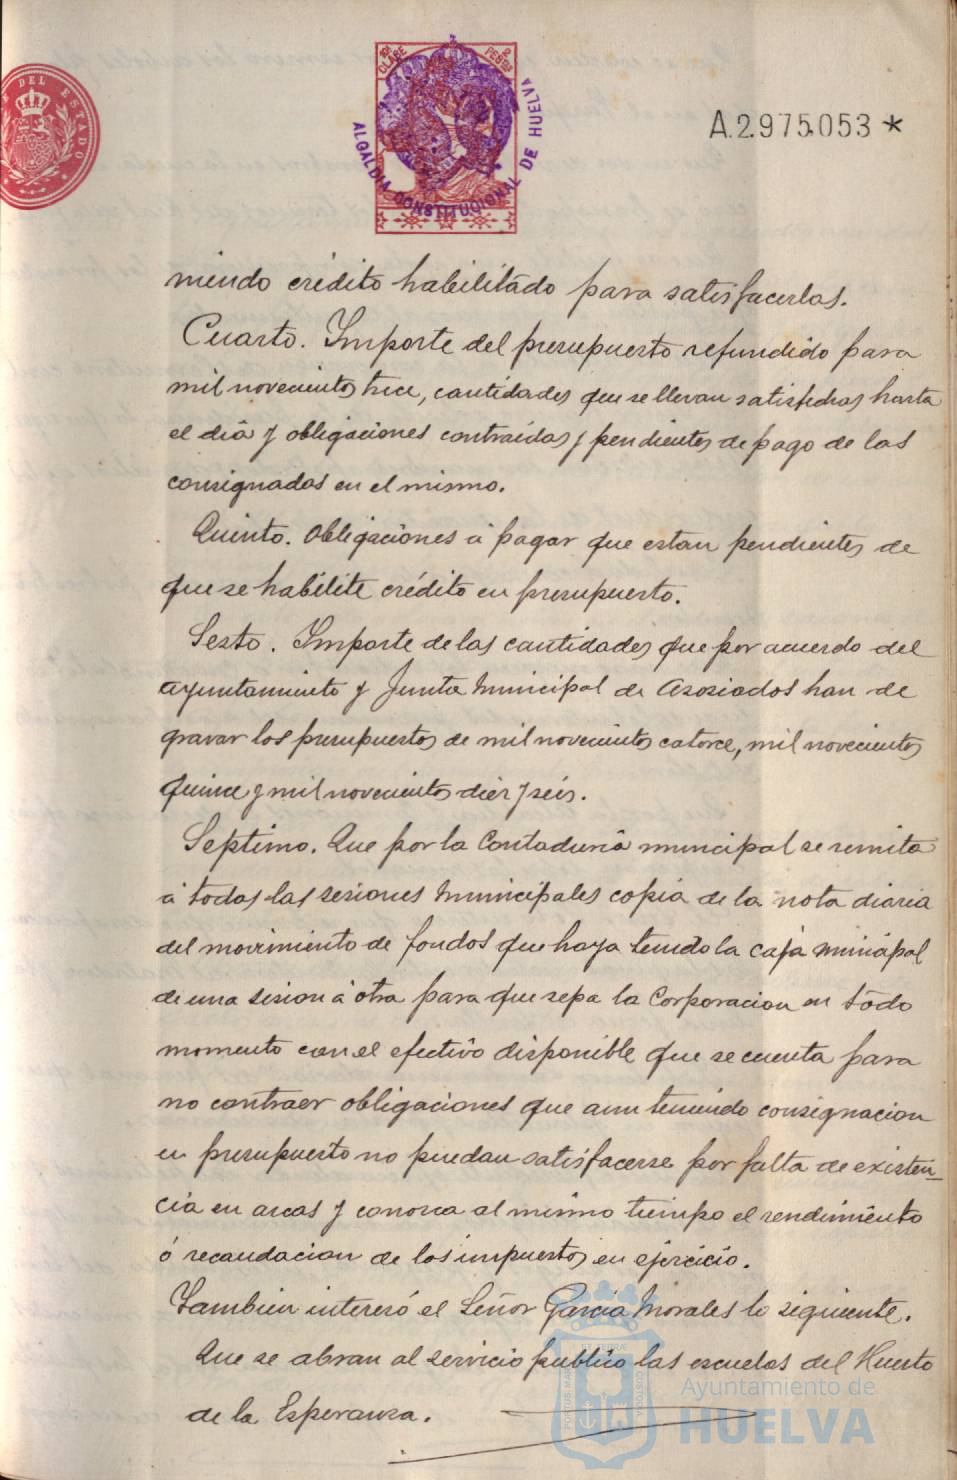 DEL ESTADO
10ª CLASE
2 PESETAS
ALCALDIA CONSTITUCIONAL DE HUELVA
A.2.975.053 *
niendo crédito habilitado para satisfacerlas.
Cuarto. Importe del presupuesto refundido para
mil novecientos trece, cantidades que se llevan satisfechas hasta
el dia y obligaciones contraidas y pendientes de pago de las
consignadas en el mismo.
Quinto. Obligaciones á pagar que estan pendientes de
que se habilite crédito en presupuesto.
Sesto. Importe de las cantidades que por acuerdo del
ayuntamiento y Junta Municipal de Asosiados han de
gravar los presupuestos de mil novecientos catorce, mil novecientos
quince y mil novecientos diez y seis.
Septimo. Que por la Contaduria municipal se remita
á todas las sesiones Municipales copia de la nota diaria
del movimiento de fondos que haya tenido la caja Municipal
de una sesion á otra para que sepa la Corporacion en todo
momento con el efectivo disponible que se cuenta para
no contraer obligaciones que aun teniendo consignacion
en presupuesto no puedan satisfacerse por falta de existen-
cia en arcas y conosca al mismo tiempo el rendimiento
ó recaudacion de los impuestos en ejercicio.
Tambien interesó el Señor Garcia Morales lo siguiente.
Que se abran al servicio publico las escuelas del Huerto
de la Esperanza.
PORTUS MARIS CUSTODIA
Ayuntamiento de
HUELVA